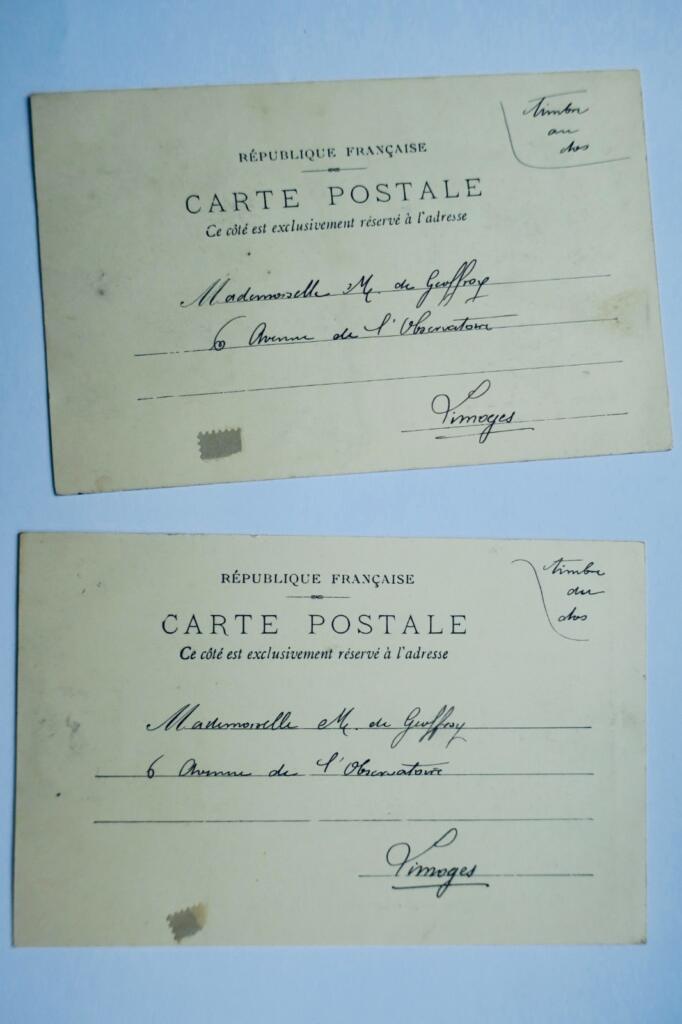 timbre
au
dos
RÉPUBLIQUE FRANÇAISE
CARTE POSTALE
Ce côté est exclusivement réservé à l'adresse
Mademoiselle M. de Geoffroy
6 Avenue de l'Observatoire
Limoges
timbre
au
dos
RÉPUBLIQUE FRANÇAISE
CARTE POSTALE
Ce côté est exclusivement réservé à l'adresse
Mademoiselle M. de Geoffroy
6 Avenue de l'Observatoire
Limoges